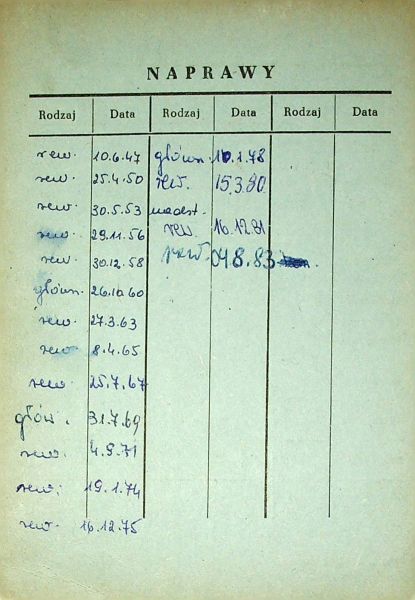 NAPRAWY
Rodzaj Data Rodzaj Data Rodzaj Data
rew. 10.6.47 główn. 10.1.78
rew. 25.4.50 rew. 15.3.80
rew. 30.5.53 nadst.
rew. 29.11.56 rew. 16.12.81
rew. 30.12.58 rew. 04.8.83
główn. 26.10.60
rew. 27.3.63
rew. 8.4.65
rew. 25.7.67
głów. 31.7.69
rew. 4.9.71
rew. 19.1.74
rew. 16.12.75